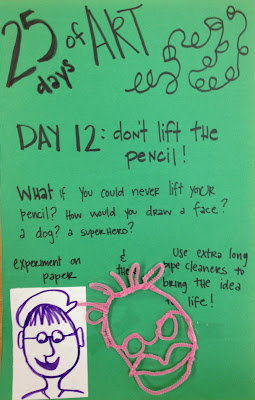 25 of ART
days
DAY 12: don't lift the
pencil!
What if you could never lift your
pencil? How would you draw a face?
a dog? a superhero?
experiment on
paper
&
Use extra long
pipe cleaners to
bring the idea
life!